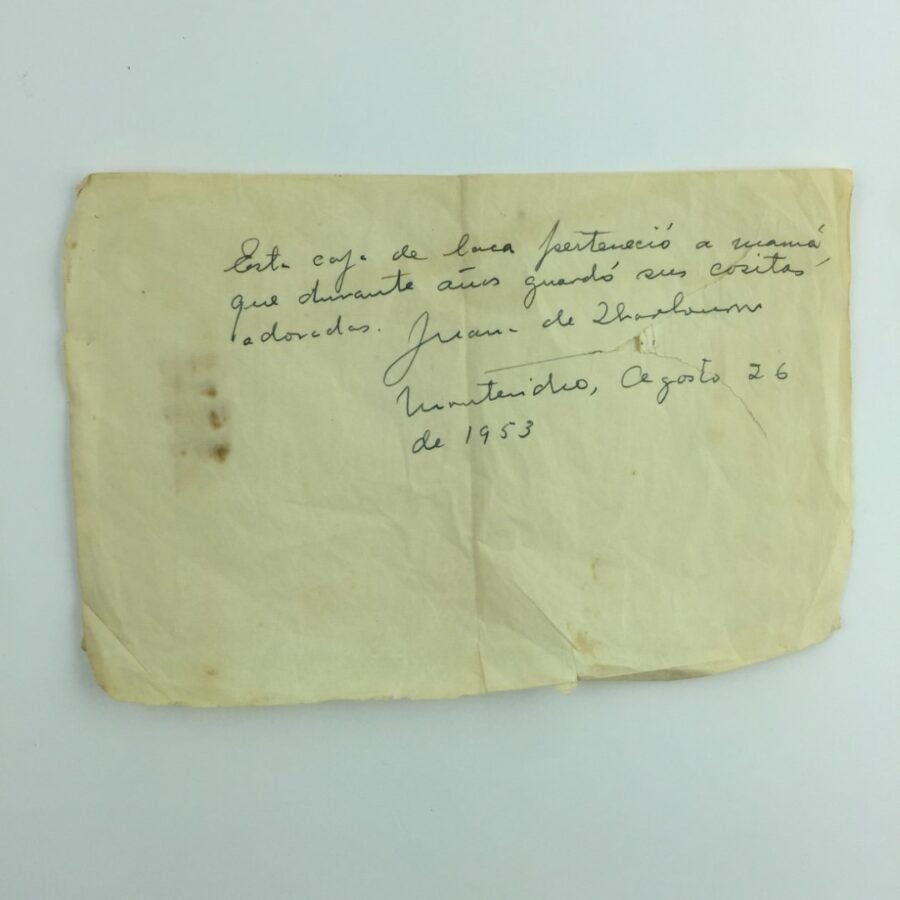 Esta caja de laca perteneció a mamá
que durante años guardó sus cositas
adoradas. Juana de Ibarbourou
Montevideo, Agosto 26
de 1953